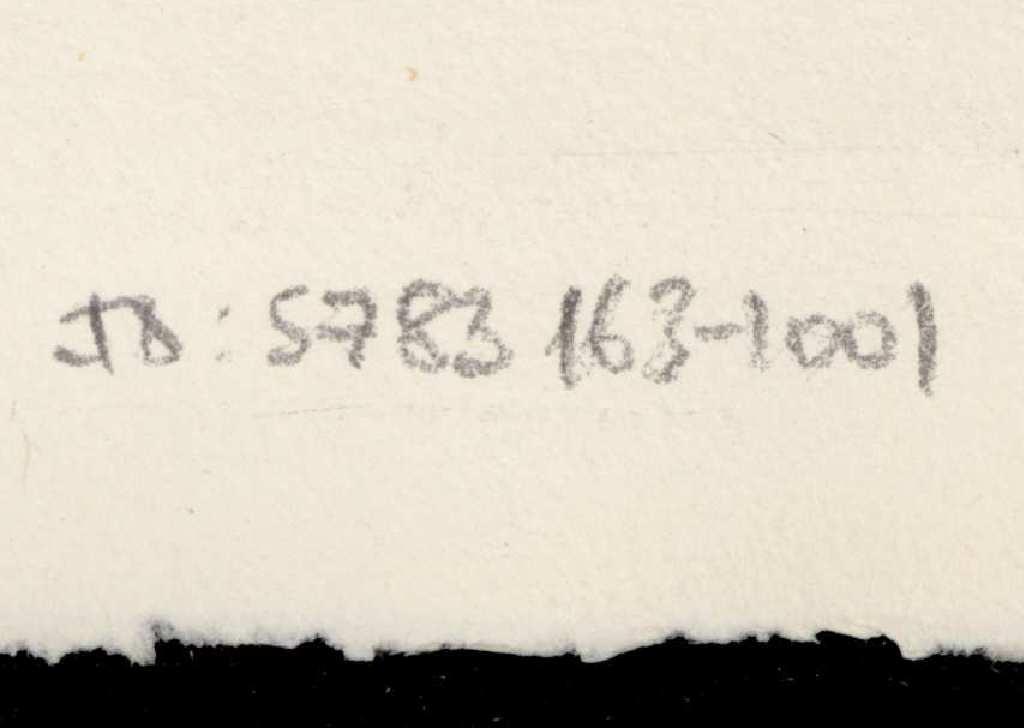 JB: 5783163-1001